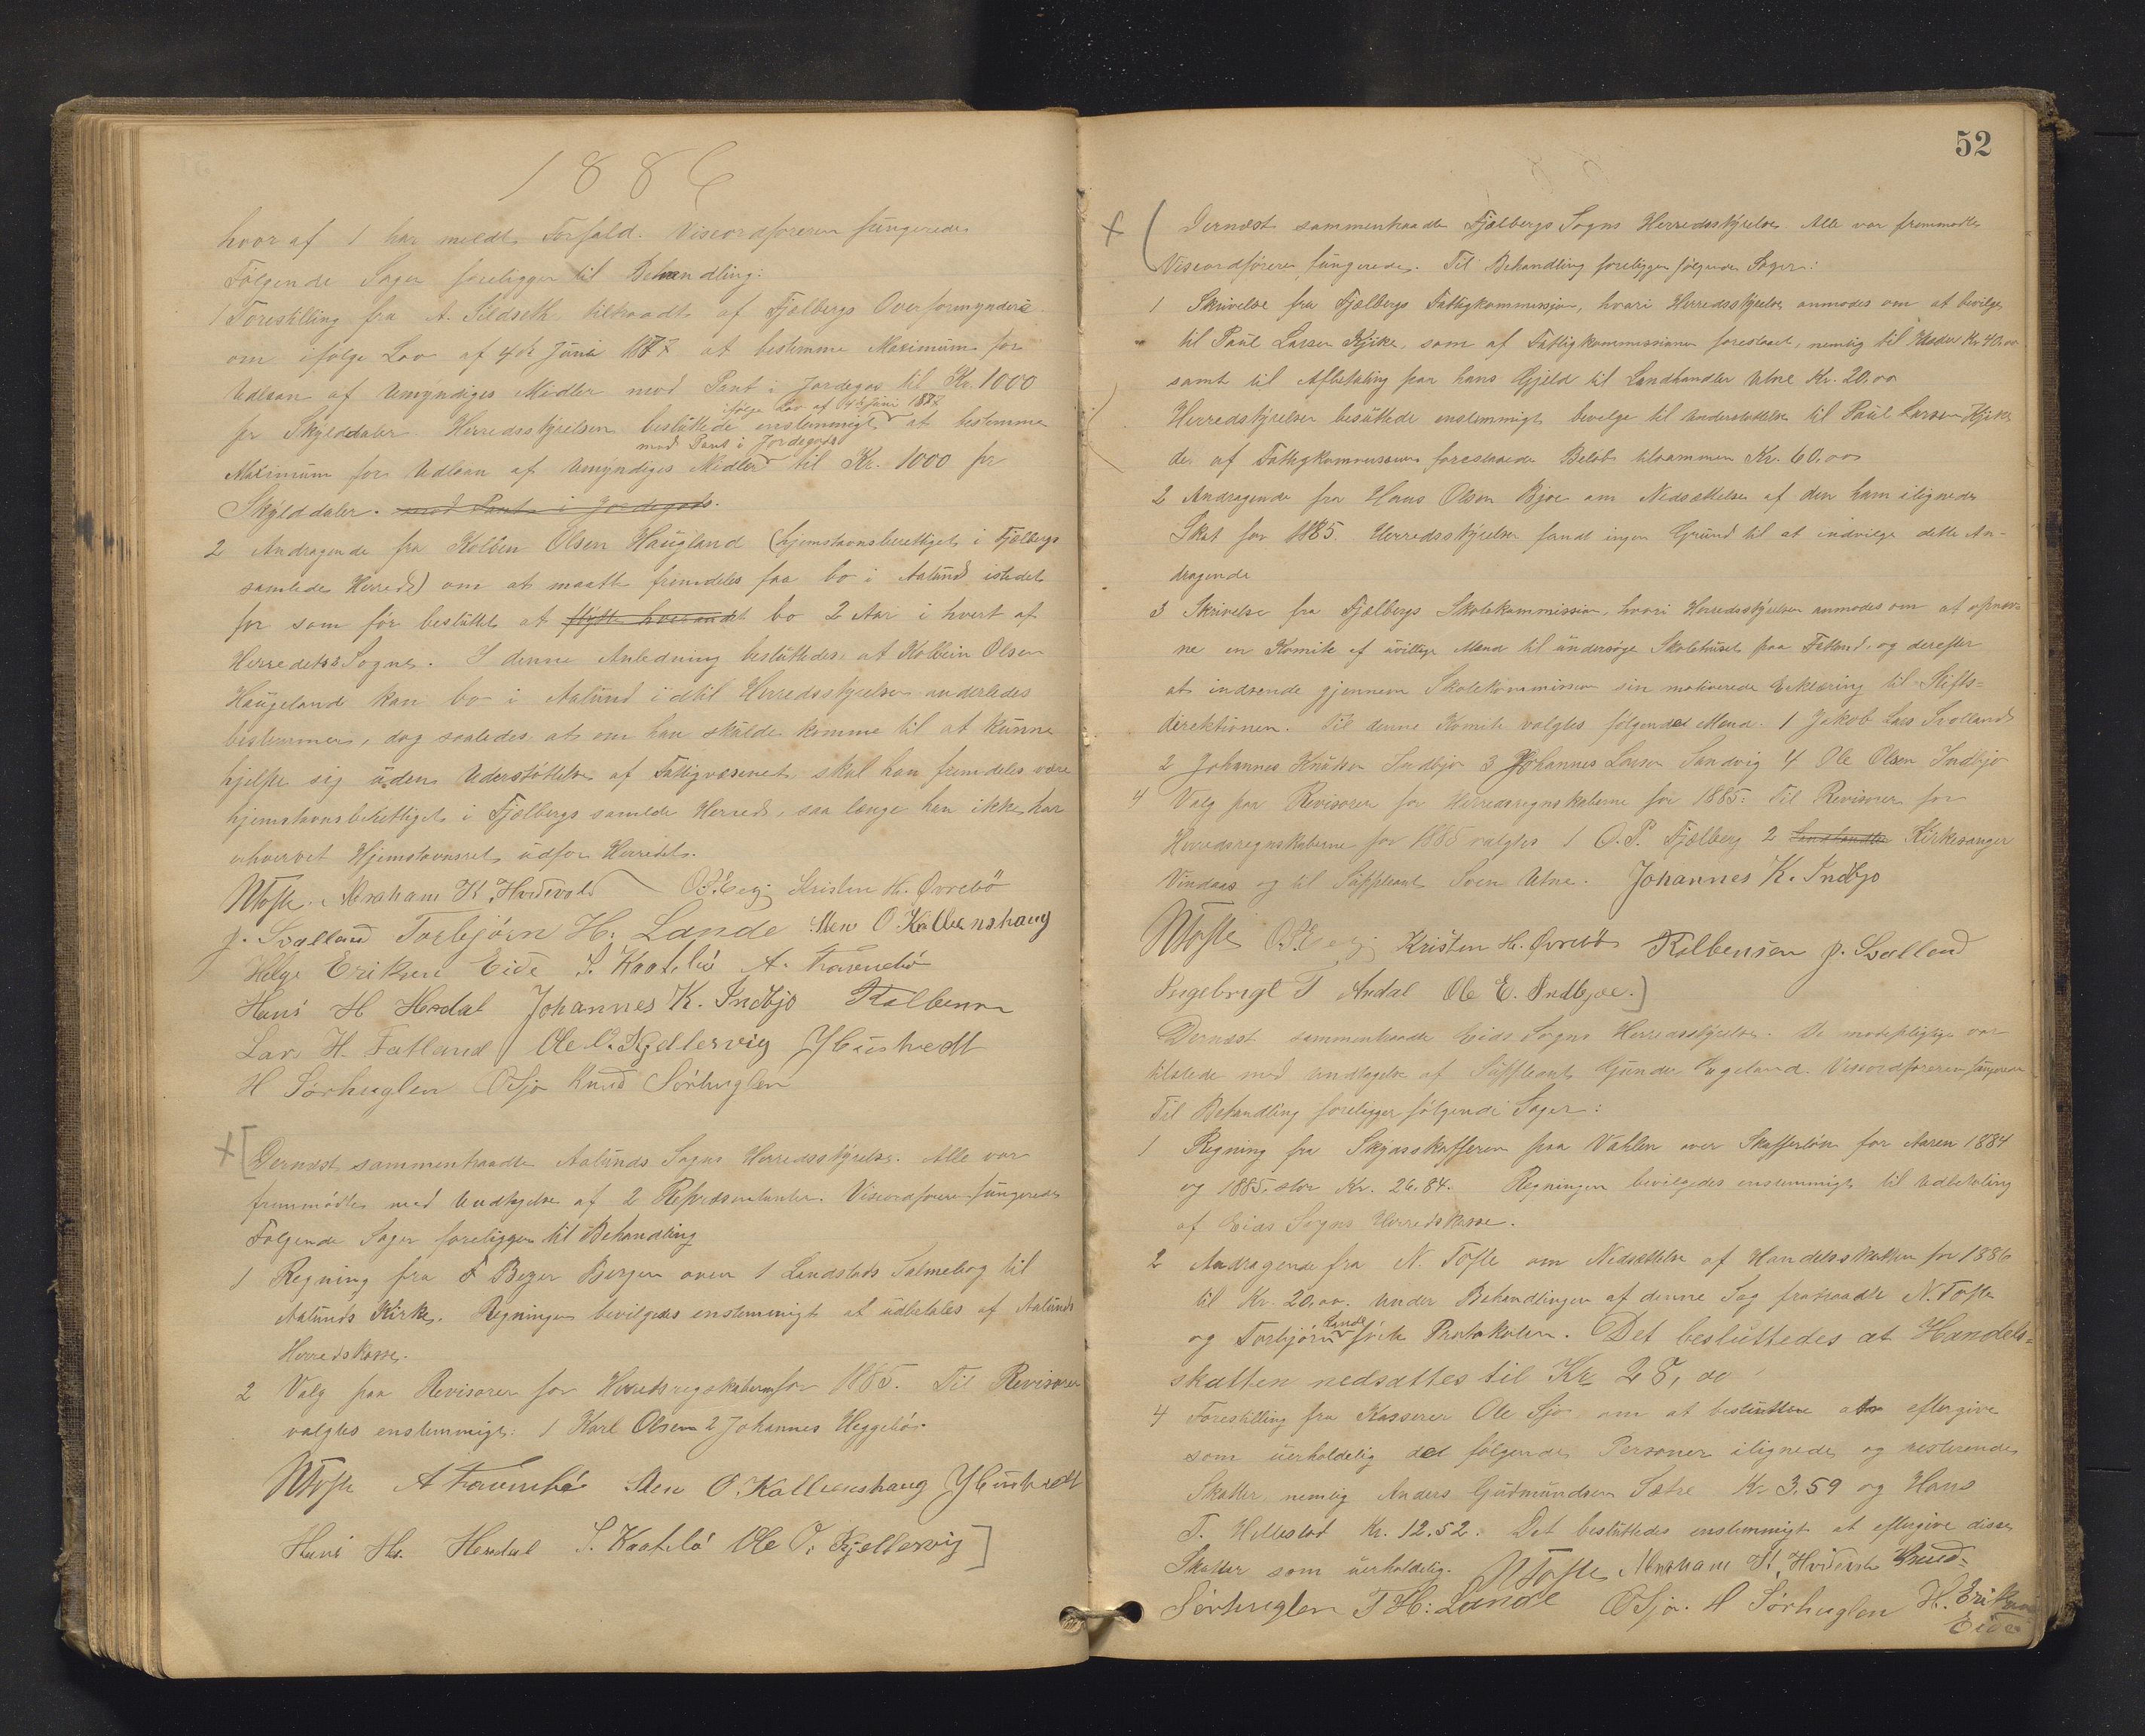 1886
hvor af 1 har meldt Forfald. Viseordføreren fungerede
Følgende Sager foreligger til Behandling:
1 Forestilling fra A. Sildseth tilraadt af Fjelbergs Overformynderi
om ifølge Lov af 4de Juni 1887 at bestemme Maximum for
Udlaan af Umyndiges Midler mod Pant i Jordegods til Kr. 1000
pr Skylddaler. Herredsstyrelsen besluttede enstemmigt ifølge Lov af 4de Juni 1887 at bestemme
Maximum for Udlaan af Umyndiges Midler mod Pant i Jordegods til Kr. 1000 pr
Skylddaler. mod Pant i Jordegods.
2 Andragende fra Kolben Olsen Haugland (hjemstavnsberettiget i Fjelbergs
samlede Herred) om at maatte fremdeles faa bo i Aalund istedet
for som før besluttet at flytte hver andet bo 2 Aar i hvert af
Herredets Sogne. I denne Anledning besluttedes at Kolbein Olsen
Haugeland kan bo i Aalund idtil Herredsstyrelsen anderledes
bestemmer, dog saaledes at om han skulde komme til at kunne
hjelpe sig uden Understøttelse af Fattigvæsenet skal han fremdeles være
hjemstavnsberettiget i Fjelbergs samlede Herred, saa længe han ikke har
erhvervet Hjemstavnsret udfor Herredet.
NTofte. Abraham K. Hvidevold O.P.Eeg Kristen H. Øvrebö
J. Svalland Torbjörn H. Lande Sten O. Kalbenshaug
Helge Eriksen Eide S. Kaatelö A. Fravendö
Hans H Herdal Johannes K. Indbjo Kolbensen
Lars H. Fatland Ole O. Kjellesvig Y Gustvedt
H Sørhuglen OSjo Knud Sørhuglen
+ [Dernæst sammentraadte Aalunds Sogns Herredsstyrelse. Alle var
fremmødte med Undtagelse af 2 Repræsentanter. Viseordfører fungerede
Følgende Sager foreligger til Behandling
1 Regning fra F Beyer Bergen over 1 Landstads Salmebog til
Aalunds Kirke. Regningen bevilgedes enstemmigt at udbetales af Aalunds
Herredskasse.
2 Valg paa Revisorer for Herredsregskaberne for 1885. Til Revisorer
valgtes enstemmigt: 1 Karl Olsen 2 Johannes Heggebö.
NTofte A Fravendö Sten O. Kalbenshaug Y Gustvedt
Hans H. Herdal S. Kaatelö Ole O. Kjellesvig ]
52
+ ( Dernæst sammentraadte Fjelbergs Sogns Herredsstyrelse. Alle var fremmødte
Viseordfører fungerede. Til Behandling foreligger følgende Sager:
1 Skrivelse fra Fjelbergs Fattigkommission, hvori Herredsstyrelse anmodes om at bevilge
til Paul Larsen Kjike, som af Fattigkommissionen foreslaaet, nemlig til Klæder Kr. 40.00
samt til Afbetaling paa hans Gjeld til Landhandler Utne Kr. 20.00
Herredsstyrelsen besluttede enstemmigt bevelge til Understøttelse til Paul Larsen Kjike
de af Fattigkommissionen foreslaaede Beløb tilsammen Kr. 60.00
2 Andragende fra Hans Olsen Bjoe om Nedsættelse af den ham ilignede
Skat for 1885. Herredsstyrelsen fandt ingen Grund til at indvilge dette An-
dragende
3 Skrivelse fra Fjelbergs Skolekommission, hvori Herredsstyrelsen anmodes om at opnæv-
ne en Komite af uvillige Mænd til undersøge Skolehuset paa Fatland, og derefter
at indsende gjennem Skolekommission sin motiverede Erklæring til Stifts-
direktionen. Til denne Komite valgtes følgende Mænd. 1 Jakob Lars Svolland
2 Johannes Knudsen Indbjo 3 Johannes Larsen Sandvig 4 Ole Olsen Indbjo
4 Valg paa Revisorer for Herredsregnskaberne for 1885. Til Revisorer for
Herredsregnskaberne for 1885 valgtes 1 O.P. Fjelberg 2 Landhandler Kirkesanger
Vindaas og til Suppleant Sven Utne. Johannes K. Indbjo
NTofte O.P.Eeg Kristen H. Øvrebö Kolbensen J. Svalland
Ingebrigt T Ardal Ole E. Indbjoe. ]
Dernæst sammentraadte Eids Sogns Herredsstyrelse. De mødepligtige var
tilstede med Undtagelse af Suppleant Gunder Engeland. Viseordføreren fungerede
Til Behandling foreligger følgende Sager:
1 Regning fra Skydsskafferen paa Vahlen over Skafferløn for Aaren 1884
og 1885, stor Kr. 26.84. Regningen bevilgedes enstemmigt til Udbetaling
af Eids Sogns Herredskasse.
2 Andragende fra N. Tofte om Nedsættelse af Handelsskatten for 1886
til Kr. 20.00. Under Behandlingen af denne Sag fratraadte N. Tofte
og Torbjörn Lande førte Protokolen. Det besluttedes at Handels-
skatten nedsattes til Kr 25,00
4 Forestilling fra Kasserer Ole Sjo om at besluttere at eftergive
som uerholdelig det følgende Personer ilignede og resterende
Skatter, nemlig Anders Gudmundsen Sætre Kr 3.59 og Hans
T. Hellestad Kr. 12.52. Det besluttedes enstemmigt at eftergive disse
Skatter som uerholdelig. NTofte Abraham K. Hvidevold Knud
Sørhuglen T H. Lande OSjo. H Sørhuglen H. Eriksen
Eide